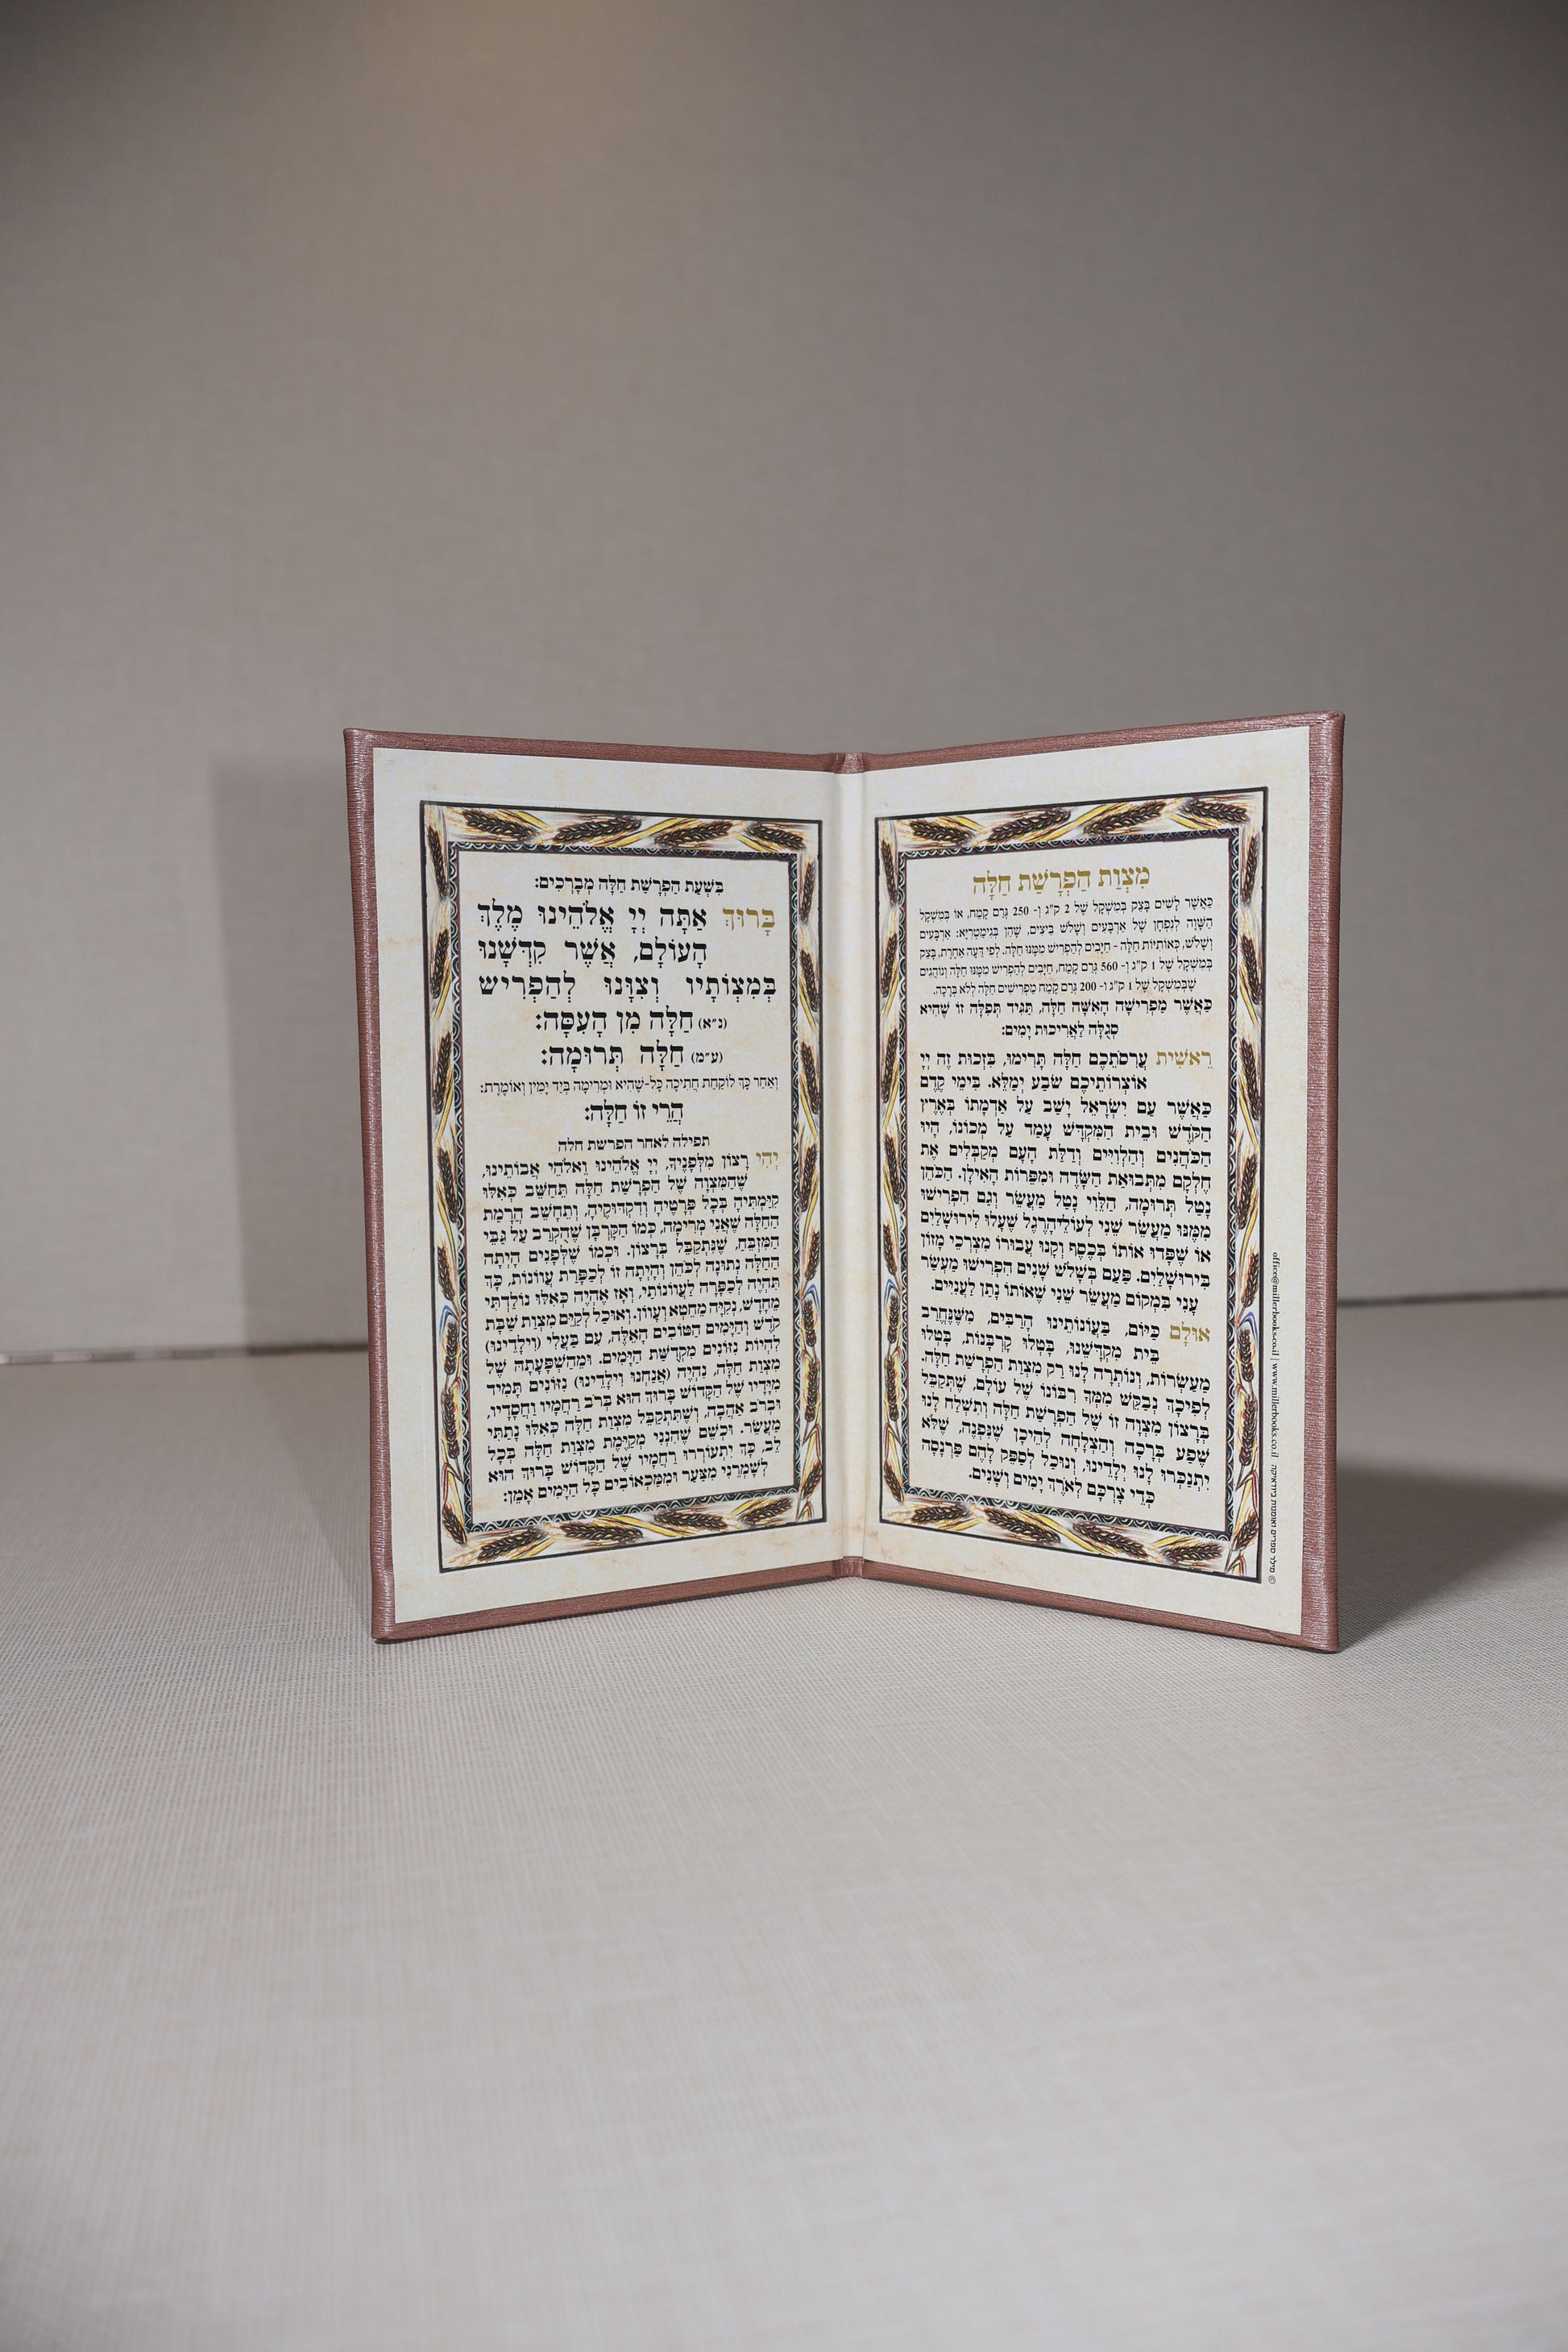 מִצְוַת הַפְרָשַׁת חַלָּה
כַּאֲשֶׁר לָשִׁים בָּצֵק בְּמִשְׁקָל שֶׁל 2 ק"ג ו- 250 גְּרַם קֶמַח, אוֹ בְּמִשְׁקָל
הַשָּׁוֶה לְנִפְחָן שֶׁל אַרְבָּעִים וְשָׁלֹשׁ בֵּיצִים, שֶׁהֵן בְּגִימַטְרִיָּא: אַרְבָּעִים
וְשָׁלֹשׁ, כְּאוֹתִיּוֹת חַלָּה - חַיָּבִים לְהַפְרִישׁ מִמֶּנּוּ חַלָּה. לְפִי דֵעָה אַחֶרֶת, בָּצֵק
בְּמִשְׁקָל שֶׁל 1 ק"ג ו- 560 גְּרַם קֶמַח, חַיָּבִים לְהַפְרִישׁ מִמֶּנּוּ חַלָּה וְנוֹהֲגִים
שֶׁבְּמִשְׁקָל שֶׁל 1 ק"ג ו- 200 גְּרַם קֶמַח מַפְרִישִׁים חַלָּה לְלֹא בְּרָכָה.
כַּאֲשֶׁר מַפְרִישָׁה הָאִשָּׁה חַלָּה, תַּגִּיד תְּפִלָּה זוֹ שֶׁהִיא
סְגֻלָּה לַאֲרִיכוּת יָמִים:
רֵאשִׁית עֲרִסֹתֵכֶם חַלָּה תָּרִימוּ, בִּזְכוּת זֶה יְיָ
אוֹצְרוֹתֵיכֶם שֹׂבַע יְמַלֵּא. בִּימֵי קֶדֶם
כַּאֲשֶׁר עַם יִשְׂרָאֵל יָשַׁב עַל אַדְמָתוֹ בְּאֶרֶץ
הַקֹּדֶשׁ וּבֵית הַמִּקְדָּשׁ עָמַד עַל מְכוֹנוֹ, הָיוּ
הַכֹּהֲנִים וְהַלְוִיִּים וְדַלַּת הָעָם מְקַבְּלִים אֶת
חֶלְקָם מִתְּבוּאַת הַשָּׂדֶה וּמִפֵּרוֹת הָאִילָן. הַכֹּהֵן
נָטַל תְּרוּמָה, הַלֵּוִי נָטַל מַעֲשֵׂר וְגַם הִפְרִישׁוּ
מִמֶּנּוּ מַעֲשֵׂר שֵׁנִי לְעוֹלֵי־הָרֶגֶל שֶׁעָלוּ לִירוּשָׁלַיִם
אוֹ שֶׁפָּדוּ אוֹתוֹ בְּכֶסֶף וְקָנוּ עֲבוּרוֹ מִצְרְכֵי מָזוֹן
בִּירוּשָׁלַיִם. פַּעַם בְּשָׁלֹשׁ שָׁנִים הִפְרִישׁוּ מַעֲשֵׂר
עָנִי בִּמְקוֹם מַעֲשֵׂר שֵׁנִי שֶׁאוֹתוֹ נָתַן לָעֲנִיִּים.
אוּלָם כַּיּוֹם, בַּעֲוֹנוֹתֵינוּ הָרַבִּים, מִשֶּׁנֶּחֱרַב
בֵּית מִקְדָּשֵׁנוּ, בָּטְלוּ קָרְבָּנוֹת, בָּטְלוּ
מַעַשְׂרוֹת, וְנוֹתְרָה לָנוּ רַק מִצְוַת הַפְרָשַׁת חַלָּה.
לְפִיכָךְ נְבַקֵּשׁ מִמְּךָ רִבּוֹנוֹ שֶׁל עוֹלָם, שֶׁתְּקַבֵּל
בְּרָצוֹן מִצְוָה זוֹ שֶׁל הַפְרָשַׁת חַלָּה וְתִשְׁלַח לָנוּ
שֶׁפַע בְּרָכָה וְהַצְלָחָה לְהֵיכָן שֶׁנִּפְנֶה, שֶׁלֹּא
יִתְנַכְּרוּ לָנוּ יְלָדֵינוּ, וְנוּכַל לְסַפֵּק לָהֶם פַּרְנָסָה
כְּדֵי צָרְכָּם לְאֹרֶךְ יָמִים וְשָׁנִים.
© מילר ספרים ואומנות ביודאיקה office@millerbooks.co.il | www.millerbooks.co.il
בִּשְׁעַת הַפְרָשַׁת חַלָּה מְבָרְכִים:
בָּרוּךְ אַתָּה יְיָ אֱלֹהֵינוּ מֶלֶךְ
הָעוֹלָם, אֲשֶׁר קִדְּשָׁנוּ
בְּמִצְוֹתָיו וְצִוָּנוּ לְהַפְרִישׁ
(נ"א) חַלָּה מִן הָעִסָּה:
(ע"מ) חַלָּה תְּרוּמָה:
וְאַחַר כָּךְ לוֹקַחַת חֲתִיכָה כָּל-שֶׁהִיא וּמְרִימָה בְּיַד יָמִין וְאוֹמֶרֶת:
הֲרֵי זוֹ חַלָּה:
תפילה לאחר הפרשת חלה
יְהִי רָצוֹן מִלְּפָנֶיךָ, יְיָ אֱלֹהֵינוּ וֵאלֹהֵי אֲבוֹתֵינוּ,
שֶׁהַמִּצְוָה שֶׁל הַפְרָשַׁת חַלָּה תֵּחָשֵׁב כְּאִלּוּ
קִיַּמְתִּיהָ בְּכָל פְּרָטֶיהָ וְדִקְדּוּקֶיהָ, וְתֵחָשֵׁב הֲרָמַת
הַחַלָּה שֶׁאֲנִי מְרִימָה, כְּמוֹ הַקָּרְבָּן שֶׁהֻקְרַב עַל גַּבֵּי
הַמִּזְבֵּחַ, שֶׁנִּתְקַבֵּל בְּרָצוֹן. וּכְמוֹ שֶׁלְּפָנִים הָיְתָה
הַחַלָּה נְתוּנָה לַכֹּהֵן וְהָיְתָה זוֹ לְכַפָּרַת עֲווֹנוֹת, כָּךְ
תִּהְיֶה לְכַפָּרָה לַעֲווֹנוֹתַי, וְאָז אֶהְיֶה כְּאִלּוּ נוֹלַדְתִּי
מֵחָדָשׁ, נְקִיָּה מֵחֵטְא וְעָווֹן. וְאוּכַל לְקַיֵּם מִצְוַת שַׁבָּת
קֹדֶשׁ וְהַיָּמִים הַטּוֹבִים הָאֵלֶּה, עִם בַּעְלִי (וִילָדֵינוּ)
לִהְיוֹת נִזּוֹנִים מִקְּדֻשַּׁת הַיָּמִים. וּמֵהַשְׁפָּעָתָהּ שֶׁל
מִצְוַת חַלָּה, נִהְיֶה (אֲנַחְנוּ וִילָדֵינוּ) נִזּוֹנִים תָּמִיד
מִיָּדָיו שֶׁל הַקָּדוֹשׁ בָּרוּךְ הוּא בְּרֹב רַחֲמָיו וַחֲסָדָיו,
וּבְרֹב אַהֲבָה, וְשֶׁתִּתְקַבֵּל מִצְוַת חַלָּה כְּאִלּוּ נָתַתִּי
מַעֲשֵׂר. וּכְשֵׁם שֶׁהִנְנִי מְקַיֶּמֶת מִצְוַת חַלָּה בְּכָל
לֵב, כָּךְ יִתְעוֹרְרוּ רַחֲמָיו שֶׁל הַקָּדוֹשׁ בָּרוּךְ הוּא
לְשָׁמְרֵנִי מִצַּעַר וּמִמַּכְאוֹבִים כָּל הַיָּמִים אָמֵן: